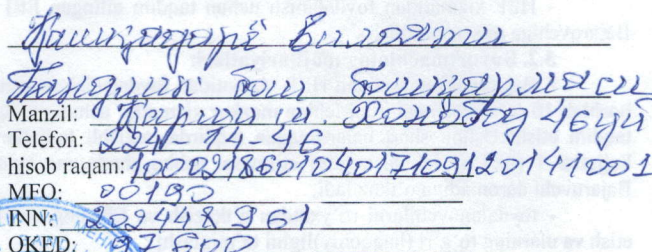 Қашқадарё Вилояти
Бандлик бош бошқармаси
Manzil: Қарши ш Хонобод 46 уй
Telefon: 224-14-46
hisob raqam: 100021860104017109120141001
MFO: 00190
INN: 202448961
OKED: